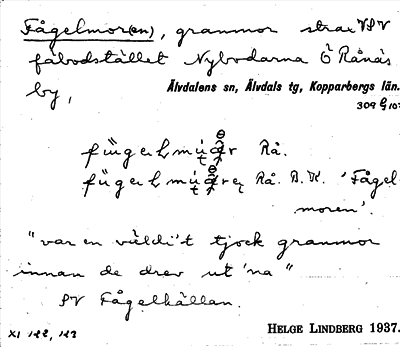 Fågelmor(en), granmor strax VSV
fäbodstället Nybodarna Ö Rånäs
by,
Älvdalens sn, Älvdals tg, Kopparbergs län.
Rå.
Rå. B.K. 'Fågel
moren'.
"var en väldi't tjock granmor
innan de drev ut 'na"
SV Fågelkällan.
HELGE LINDBERG 1937.
XI 122, 123